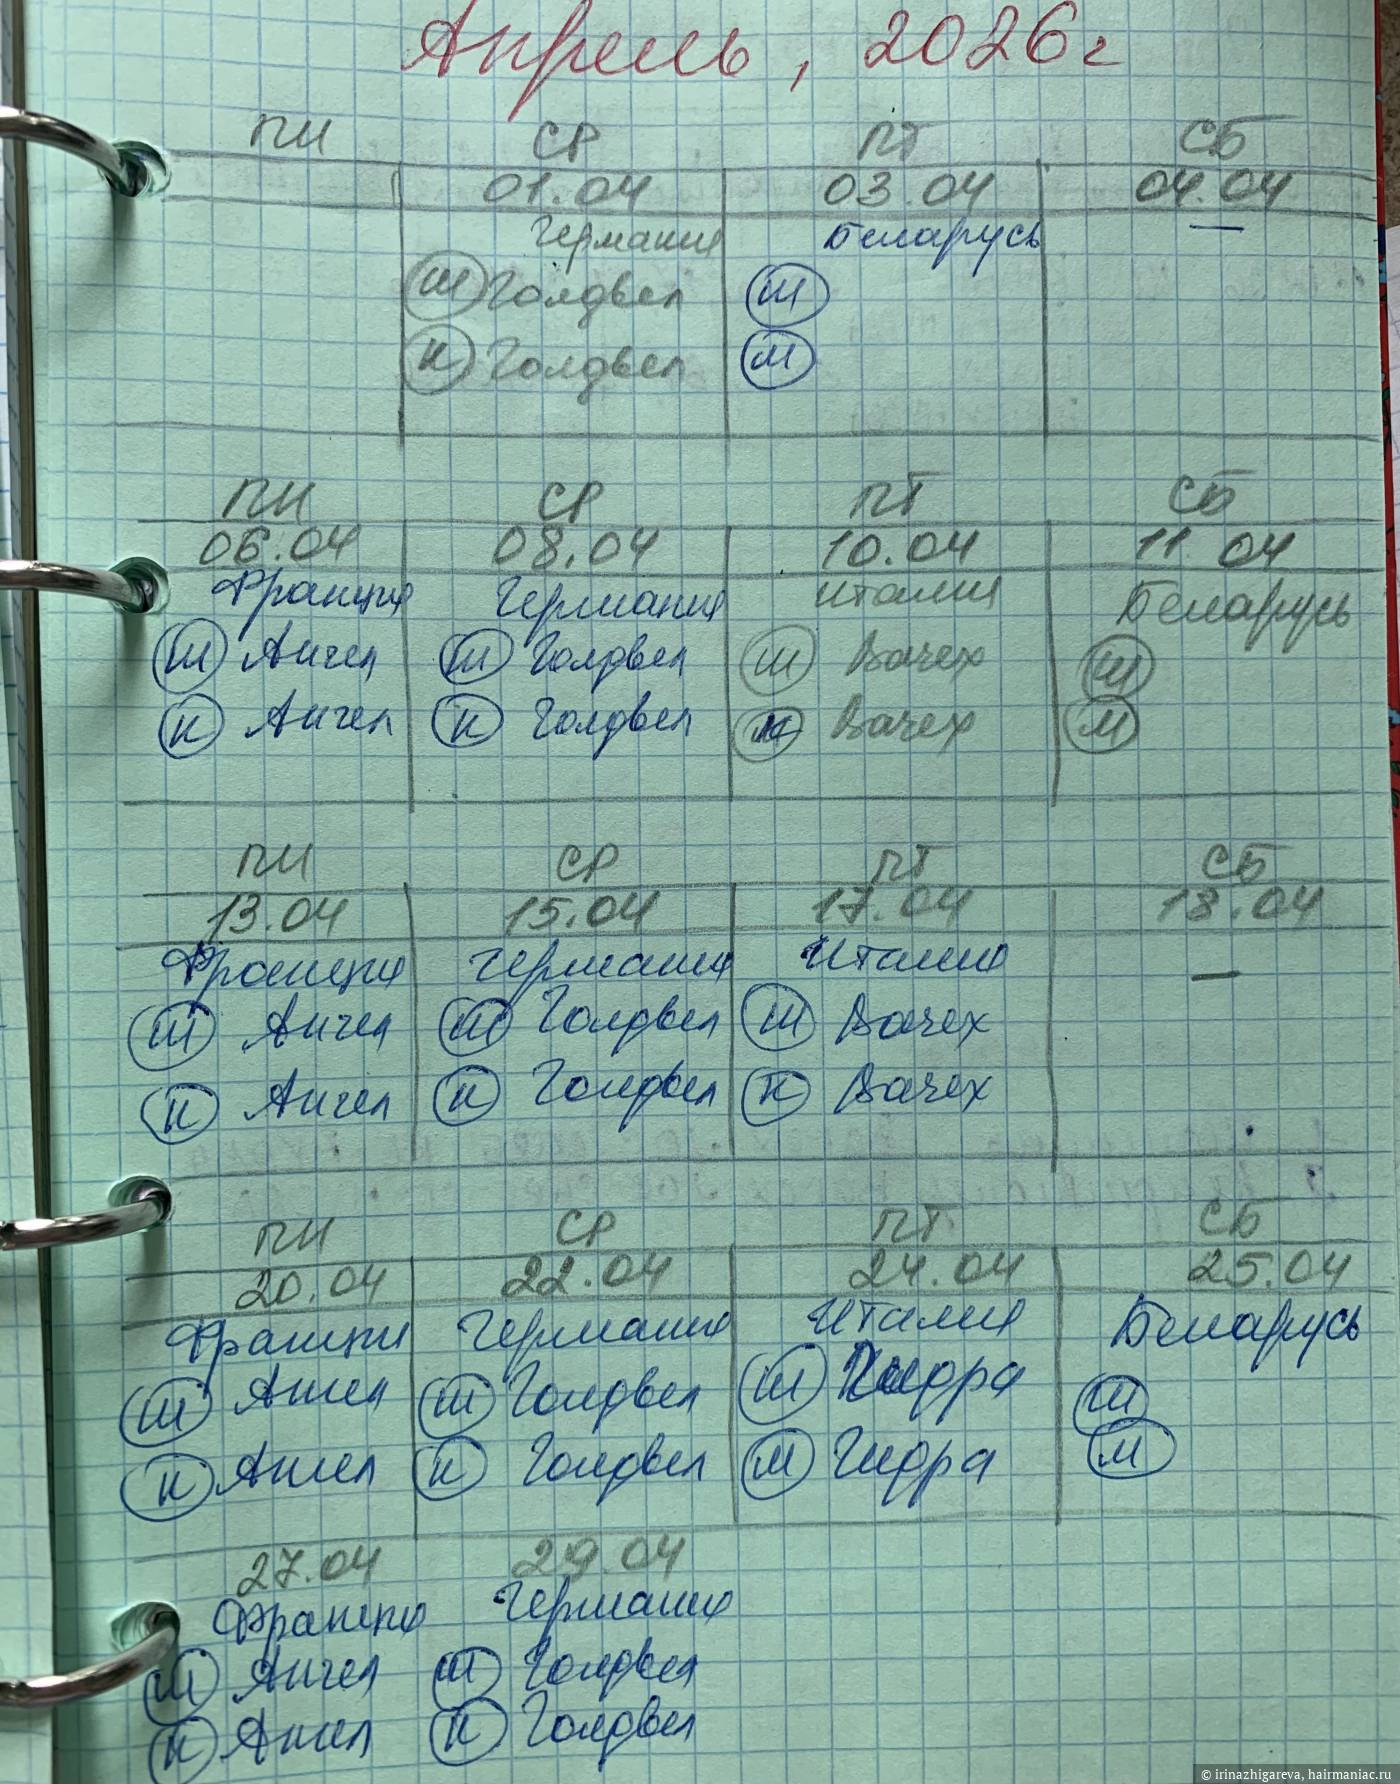 Апрель, 2026 г
ПН СР ПТ СБ
01.04 03.04 04.04
Германия Беларусь —
Ш Голдвел Ш
К Голдвел М
ПН СР ПТ СБ
06.04 08.04 10.04 11.04
Франция Германия Италия Беларусь
Ш Ангел Ш Голдвел Ш Вачех Ш
К Ангел К Голдвел К Вачех М
ПН СР ПТ СБ
13.04 15.04 17.04 18.04
Франция Германия Италия —
Ш Ангел Ш Голдвел Ш Вачех
К Ангел К Голдвел К Вачех
ПН СР ПТ СБ
20.04 22.04 24.04 25.04
Франция Германия Италия Беларусь
Ш Ангел Ш Голдвел Ш Гидра Ш
К Ангел К Голдвел М Гидра М
27.04 29.04
Франция Германия
Ш Ангел Ш Голдвел
К Ангел К Голдвел
© irinazhigareva, hairmaniac.ru